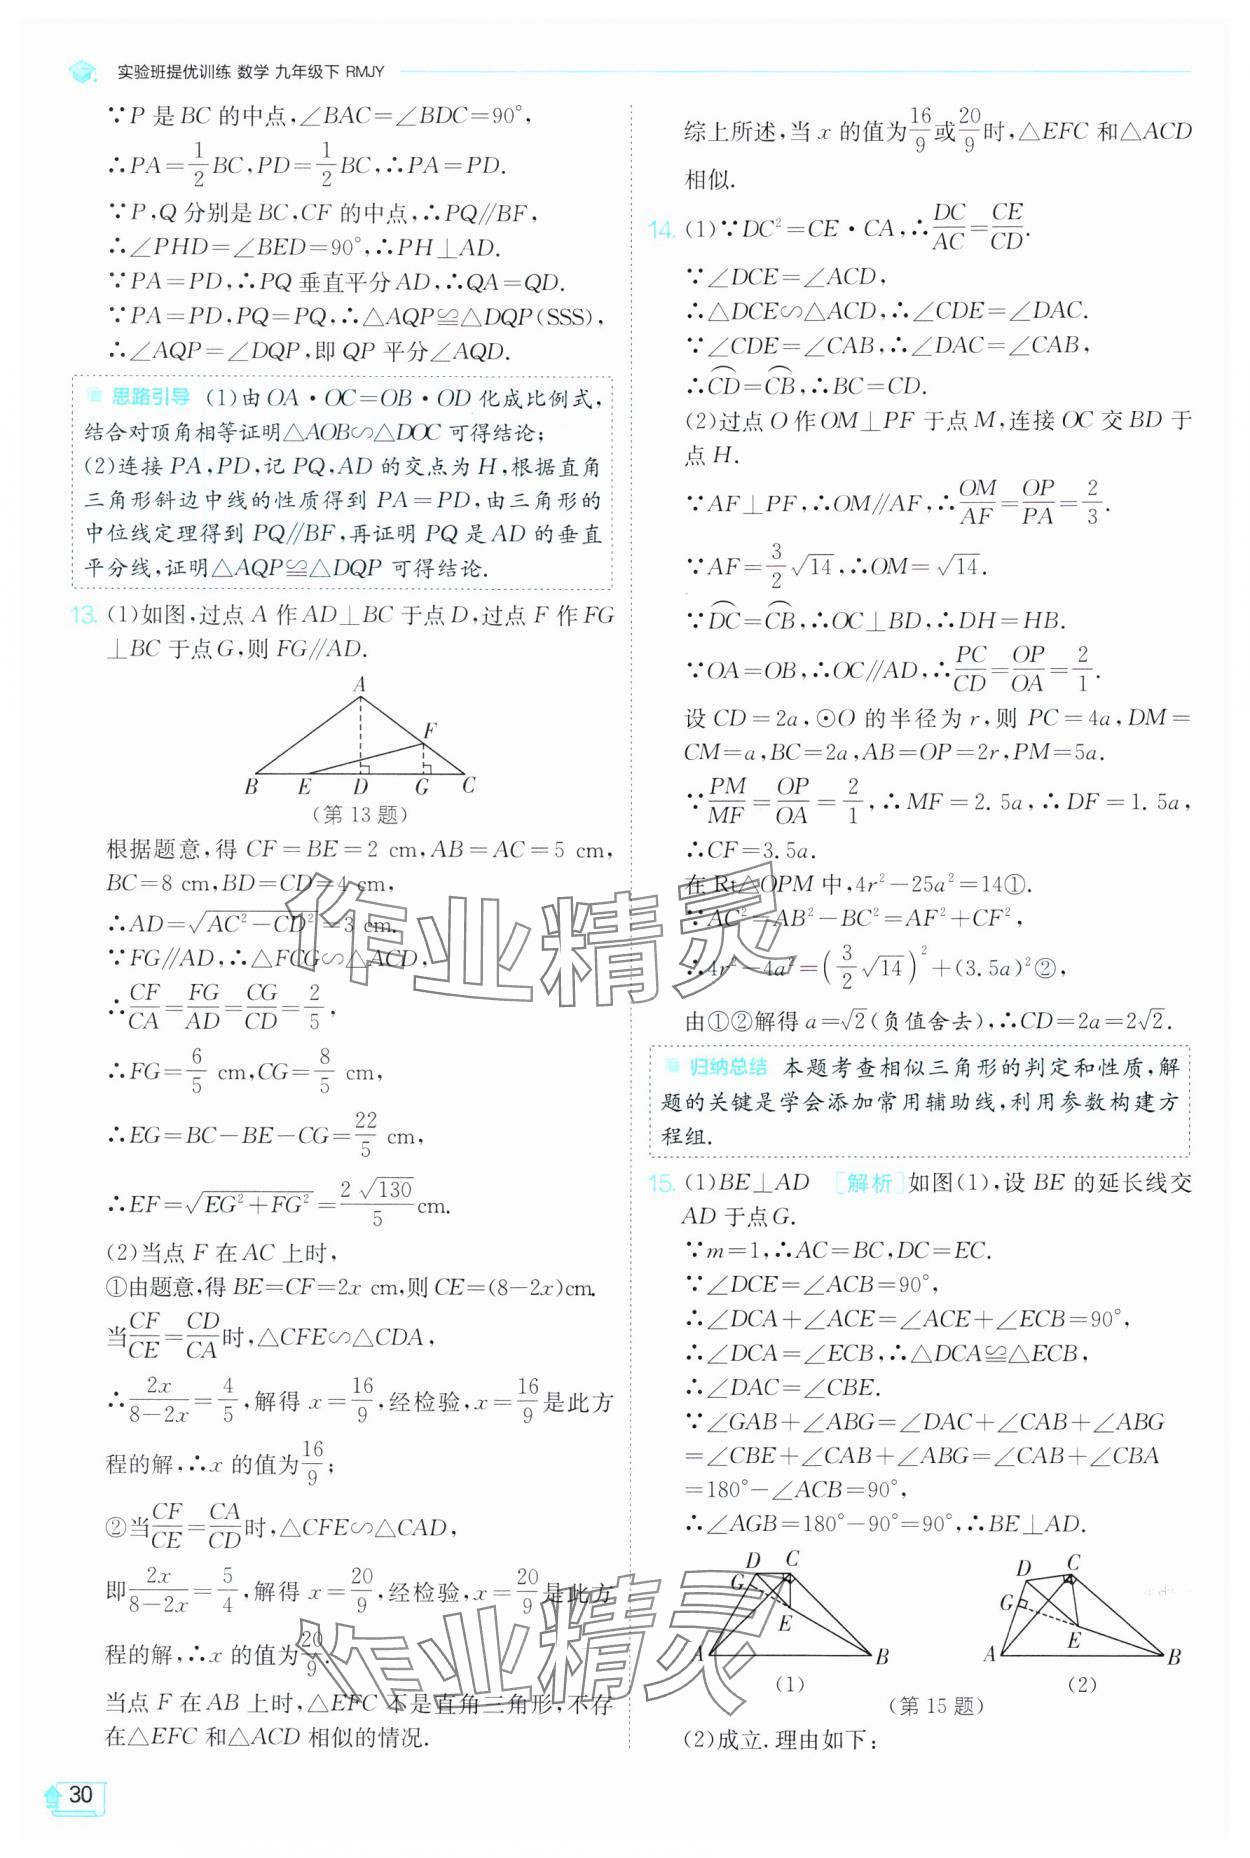 实验班提优训练 数学 九年级下 RMJY
∵P 是 BC 的中点,∠BAC=∠BDC=90°,
∴PA=1/2BC,PD=1/2BC,∴PA=PD.
∵P,Q 分别是 BC,CF 的中点,∴PQ∥BF,
∴∠PHD=∠BED=90°,∴PH⊥AD.
∵PA=PD,∴PQ 垂直平分 AD,∴QA=QD.
∵PA=PD,PQ=PQ,∴△AQP≌△DQP(SSS),
∴∠AQP=∠DQP,即 QP 平分∠AQD.
思路引导 (1)由 OA·OC=OB·OD 化成比例式,
结合对顶角相等证明△AOB∽△DOC 可得结论;
(2)连接 PA,PD,记 PQ,AD 的交点为 H,根据直角
三角形斜边中线的性质得到 PA=PD,由三角形的
中位线定理得到 PQ∥BF,再证明 PQ 是 AD 的垂直
平分线,证明△AQP≌△DQP 可得结论.
13. (1)如图,过点 A 作 AD⊥BC 于点 D,过点 F 作 FG
⊥BC 于点 G,则 FG∥AD.
A
F
B E D G C
(第 13 题)
根据题意,得 CF=BE=2 cm,AB=AC=5 cm,
BC=8 cm,BD=CD=4 cm,
∴AD=√(AC²-CD²)=3 cm.
∵FG∥AD,∴△FCG∽△ACD,
∴CF/CA=FG/AD=CG/CD=2/5,
∴FG=6/5 cm,CG=8/5 cm,
∴EG=BC-BE-CG=22/5 cm,
∴EF=√(EG²+FG²)=2√130/5 cm.
(2)当点 F 在 AC 上时,
①由题意,得 BE=CF=2x cm,则 CE=(8-2x)cm.
当CF/CE=CD/CA时,△CFE∽△CDA,
∴2x/(8-2x)=4/5,解得 x=16/9,经检验,x=16/9是此方
程的解,∴x 的值为16/9;
②当CF/CE=CA/CD时,△CFE∽△CAD,
即2x/(8-2x)=5/4,解得 x=20/9,经检验,x=20/9是此方
程的解,∴x 的值为20/9.
当点 F 在 AB 上时,△EFC 不是直角三角形,不存
在△EFC 和△ACD 相似的情况.
综上所述,当 x 的值为16/9或20/9时,△EFC 和△ACD
相似.
14. (1)∵DC²=CE·CA,∴DC/AC=CE/CD.
∵∠DCE=∠ACD,
∴△DCE∽△ACD,∴∠CDE=∠DAC.
∵∠CDE=∠CAB,∴∠DAC=∠CAB,
∴⌒CD=⌒CB,∴BC=CD.
(2)过点 O 作 OM⊥PF 于点 M,连接 OC 交 BD 于
点 H.
∵AF⊥PF,∴OM∥AF,∴OM/AF=OP/PA=2/3.
∵AF=3/2√14,∴OM=√14.
∵⌒DC=⌒CB,∴OC⊥BD,∴DH=HB.
∵OA=OB,∴OC∥AD,∴PC/CD=OP/OA=2/1.
设 CD=2a,⊙O 的半径为 r,则 PC=4a,DM=
CM=a,BC=2a,AB=OP=2r,PM=5a.
∵PM/MF=OP/OA=2/1,∴MF=2.5a,∴DF=1.5a,
∴CF=3.5a.
在 Rt△OPM 中,4r²-25a²=14①.
∵AC²=AB²-BC²=AF²+CF²,
∴4r²-4a²=(3/2√14)²+(3.5a)²②,
由①②解得 a=√2(负值舍去),∴CD=2a=2√2.
归纳总结 本题考查相似三角形的判定和性质,解
题的关键是学会添加常用辅助线,利用参数构建方
程组.
15. (1)BE⊥AD [解析]如图(1),设 BE 的延长线交
AD 于点 G.
∵m=1,∴AC=BC,DC=EC.
∵∠DCE=∠ACB=90°,
∴∠DCA+∠ACE=∠ACE+∠ECB=90°,
∴∠DCA=∠ECB,∴△DCA≌△ECB,
∴∠DAC=∠CBE.
∵∠GAB+∠ABG=∠DAC+∠CAB+∠ABG
=∠CBE+∠CAB+∠ABG=∠CAB+∠CBA
=180°-∠ACB=90°,
∴∠AGB=180°-90°=90°,∴BE⊥AD.
D C
G
E
A B
(1)
D C
G
E
A B
(2)
(第 15 题)
(2)成立.理由如下:
30
作业精灵
作业精灵